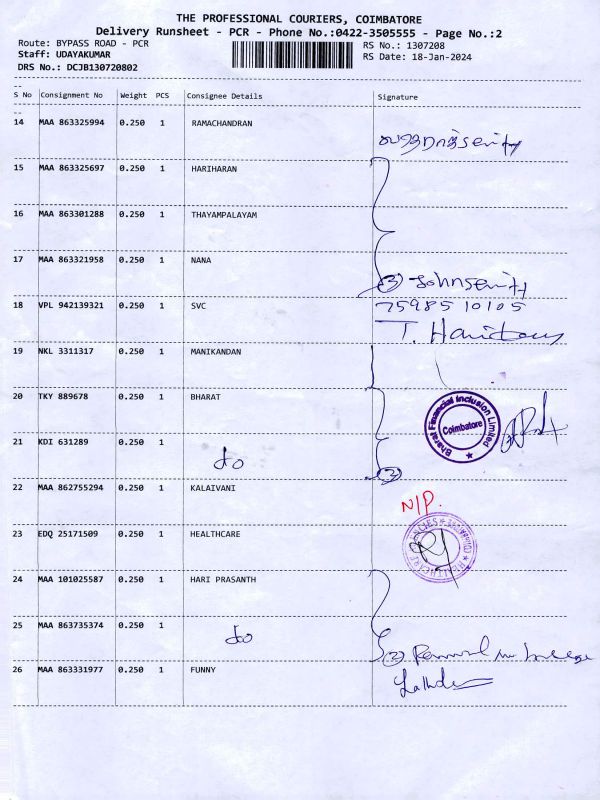 THE PROFESSIONAL COURIERS, COIMBATORE
Delivery Runsheet - PCR - Phone No.:0422-3505555 - Page No.:2
Route: BYPASS ROAD - PCR
RS No.: 1307208
Staff: UDAYAKUMAR
RS Date: 18-Jan-2024
DRS No.: DCJB130720802
S No Consignment No Weight PCS Consignee Details Signature
14 MAA 863325994 0.250 1 RAMACHANDRAN
15 MAA 863325697 0.250 1 HARIHARAN
16 MAA 863301288 0.250 1 THAYAMPALAYAM
17 MAA 863321958 0.250 1 NANA
3
18 VPL 942139321 0.250 1 SVC 75985 10105
19 NKL 3311317 0.250 1 MANIKANDAN
20 TKY 889678 0.250 1 BHARAT
Bharat Financial Inclusion Limited
Coimbatore
21 KDI 631289 0.250 1 do
2
22 MAA 862755294 0.250 1 KALAIVANI N/P
23 EDQ 25171509 0.250 1 HEALTHCARE
24 MAA 101025587 0.250 1 HARI PRASANTH
25 MAA 863735374 0.250 1 do
2
26 MAA 863331977 0.250 1 FUNNY